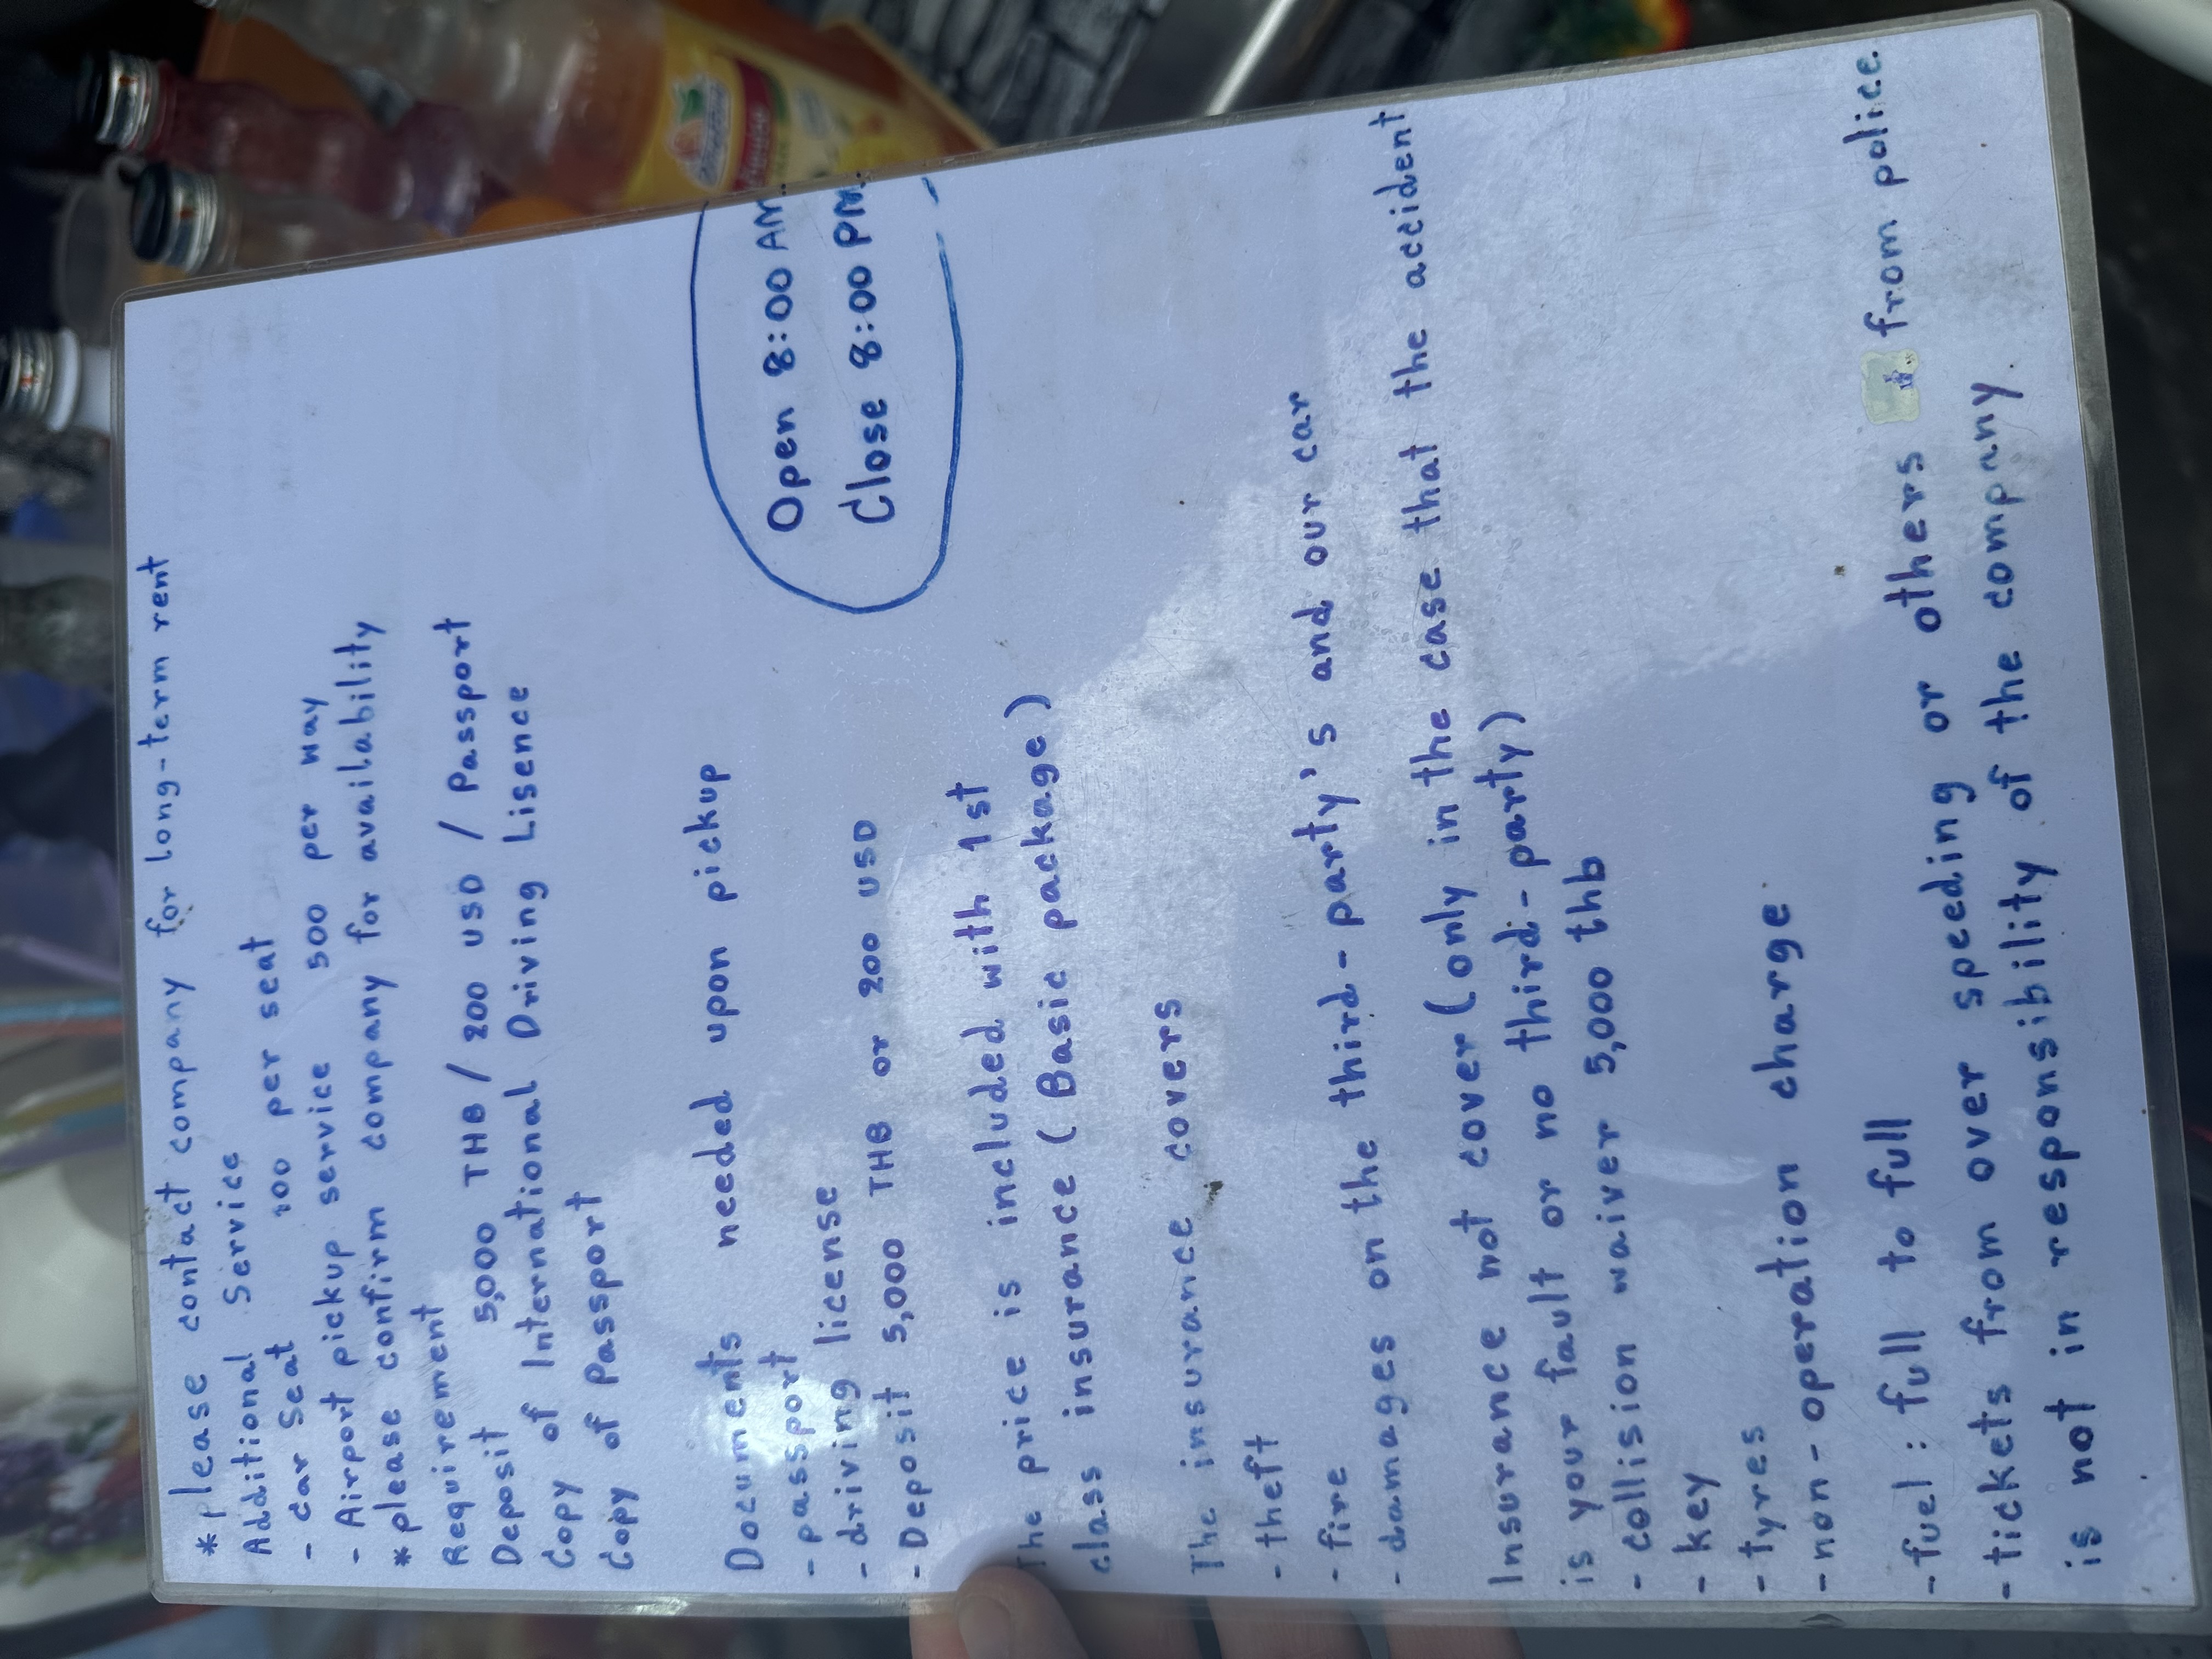 * please contact company for long-term rent
Additional Service
- car seat 200 per seat
- Airport pickup service 500 per way
* please confirm company for availability
Requirement
Deposit 5,000 THB / 200 USD / Passport
Copy of International Driving Lisence
Copy of Passport
Documents needed upon pickup
- passport
- driving license
- Deposit 5,000 THB or 200 USD
Open 8:00 AM.
Close 8:00 PM.
The price is included with 1st
class insurance ( Basic package )
The insurance covers
- theft
- fire
- damages on the third-party's and our car
Insurance not cover (only in the case that the accident
is your fault or no third-party)
- collision waiver 5,000 thb
- key
- tyres
- non-operation charge
- fuel : full to full
- tickets from over speeding or others from police.
is not in responsibility of the company.